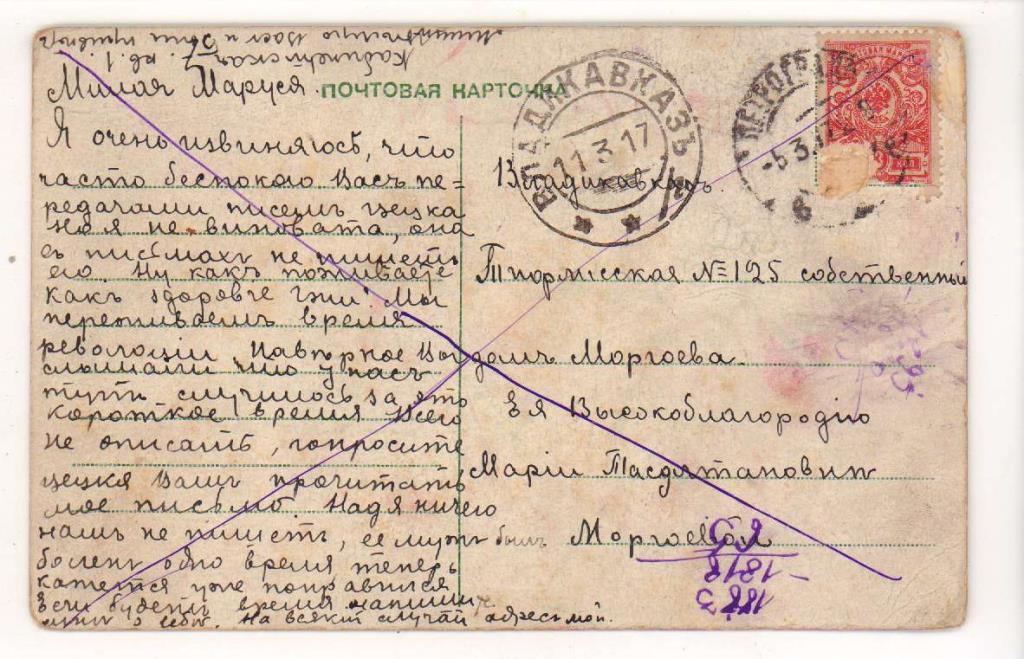 Милая Маруся.
Я очень извиняюсь, что
часто беспокою Васъ пе-
редачами писемъ
но я не виновата, она
въ письмахъ не пишетъ
его. Ну какъ поживаете
какъ здоровье Мы
переживаемъ время
революціи. Навѣрное Вы
слышали что у насъ
тутъ случилось за это
короткое время. Всего
не описать, попросите
Вамъ прочитать
мое письмо. Надя ничего
намъ не пишетъ, ее мужъ былъ
боленъ одно время теперь
кажется уже поправился.
Если будетъ время напишите
мнѣ о себѣ. На всякій случай адресъ мой.
Кабинетская 7. кв. 1.
ПОЧТОВАЯ КАРТОЧКА
ВЛАДИКАВКАЗЪ
11 3 17
ПЕТРОГРАДЪ
-5.3.17
6
Владикавказъ.
№ 125 собственный
домъ Моргоева.
Ея Высокоблагородію
Маріи
Моргоевой